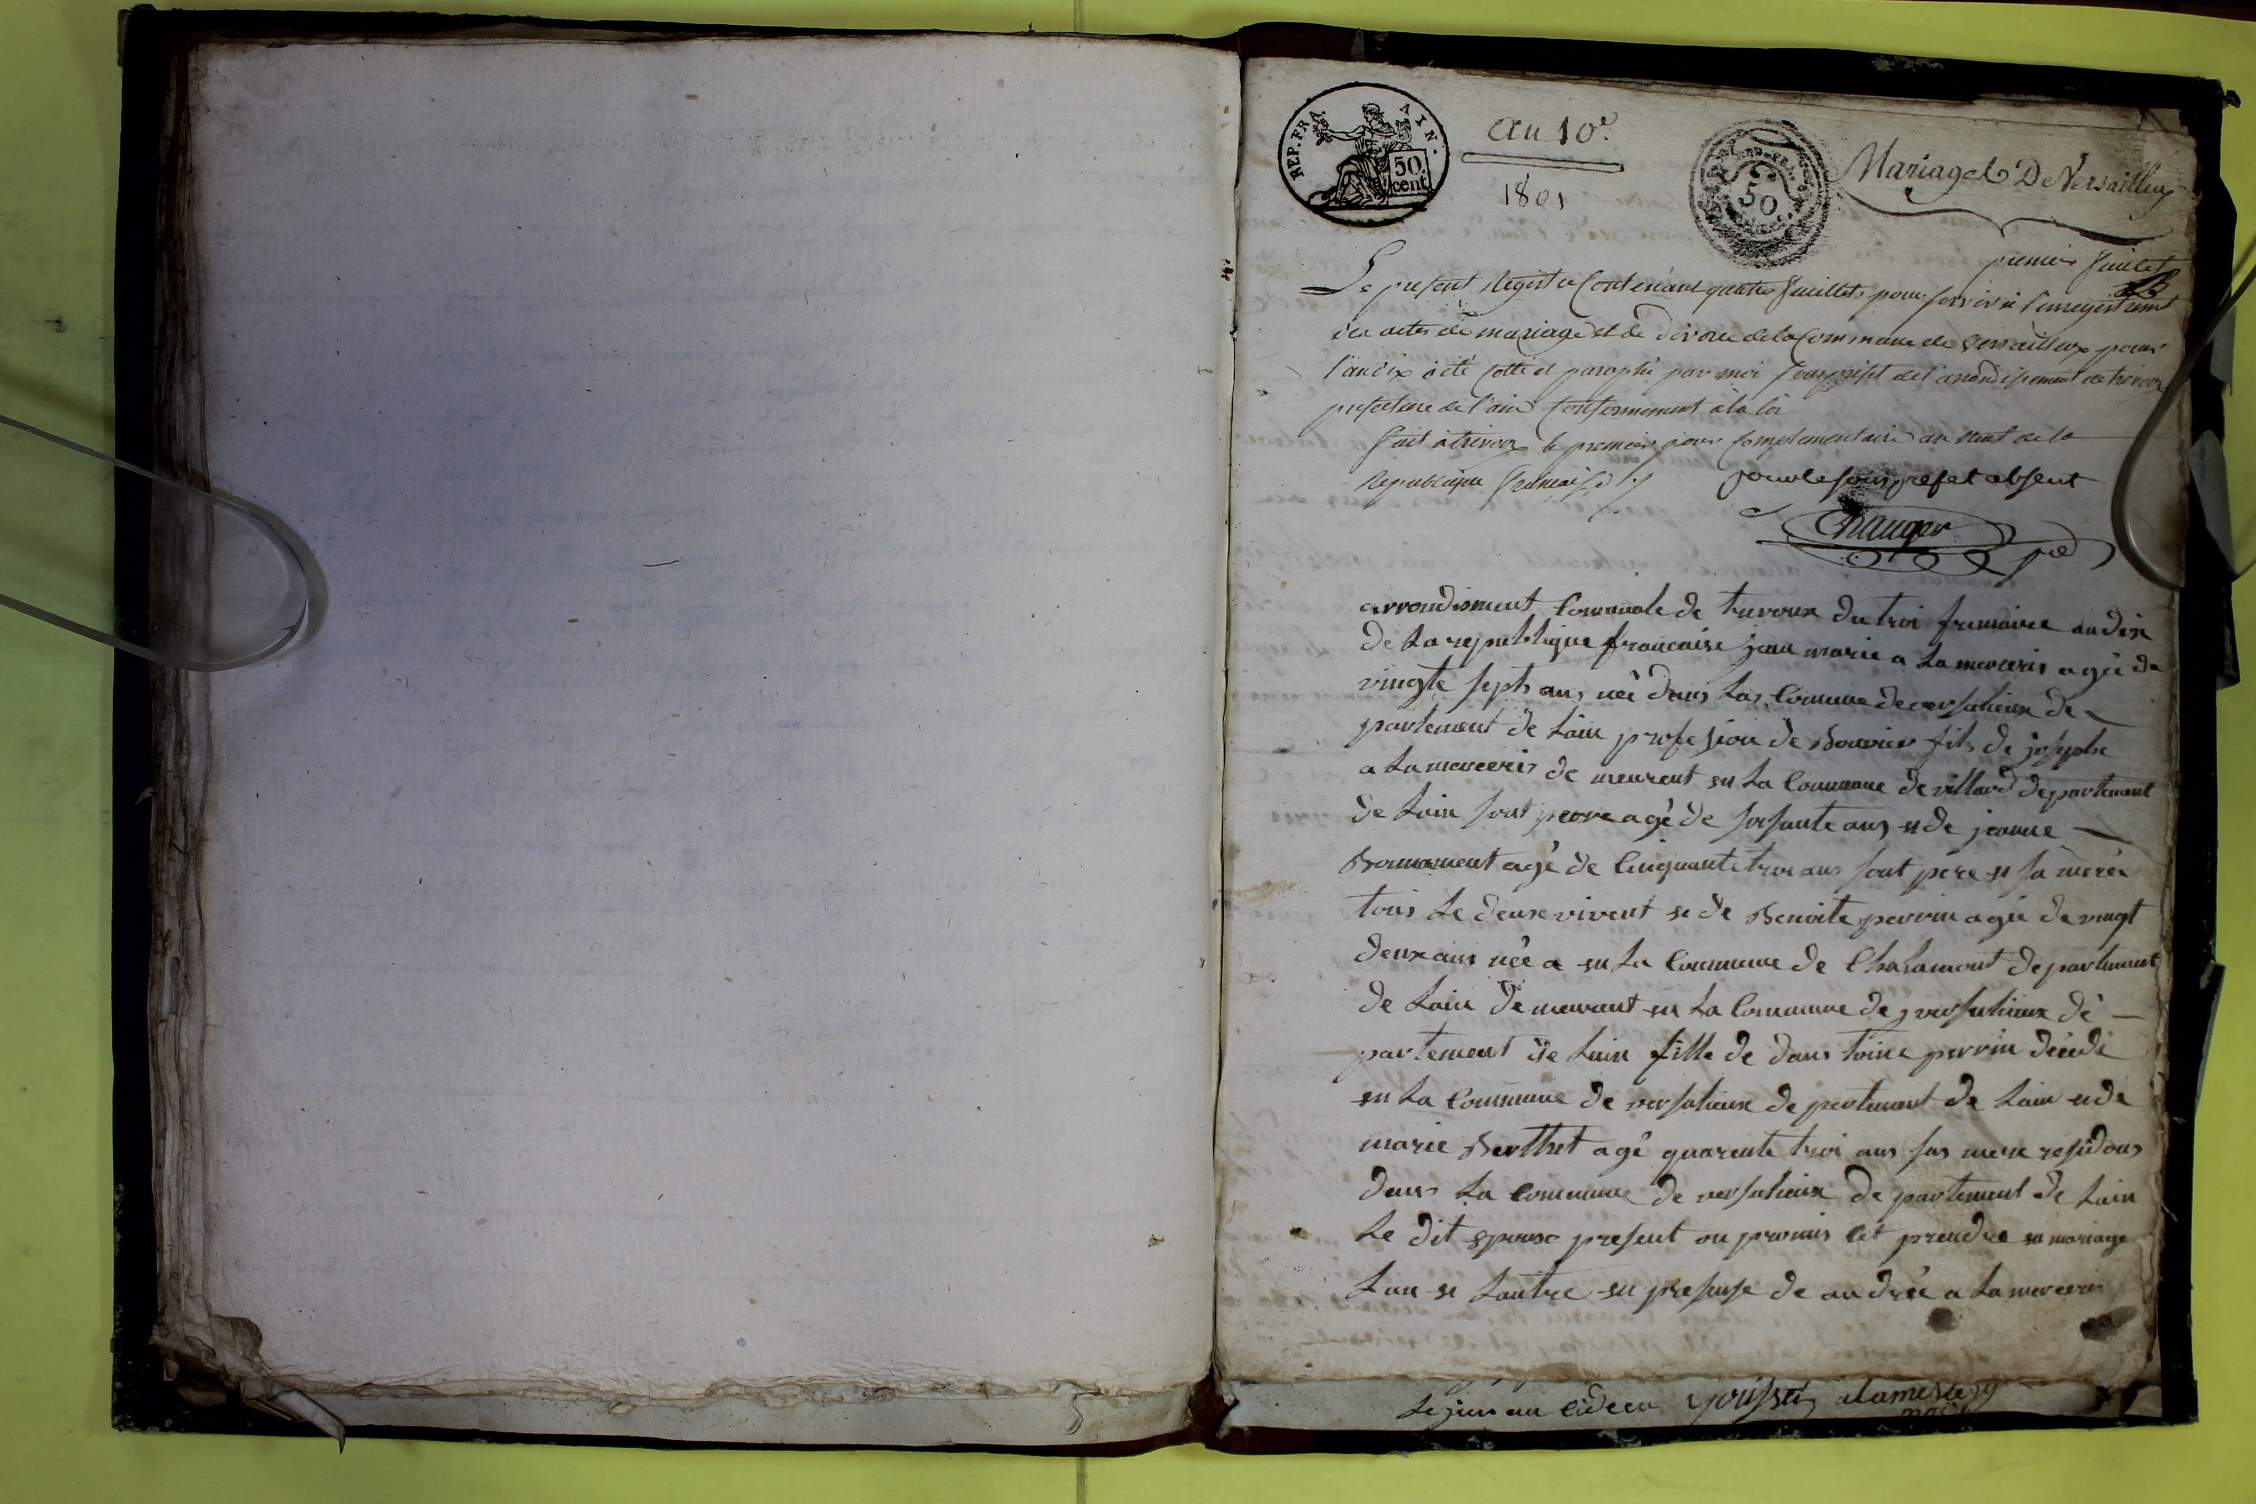 REP. FRA. AIN.
50 cent
an 10e
1801
50
Mariages De Versailleux
premier feuillet
Le present Registre Contenant quatre feuillets pour servir à l'enregistrement
des actes de mariage et de divorce de la Commune de Versailleux pour
l'an dix a été Cotté et paraphé par moi souspréfet de l'arrondissement de trevoux
prefecture de l'ain Conformement à la loi
fait à trevoux le premier jour Complementaire an neuf de la
Republique francaise
pour le sous prefet absent
arrondisment Comunale de trevoux du troi frimaire an dix
de La republique francaise jean marie a Lamerceris agée de
vingte sept ans née dans Las Comune de versalieux de
partement de Lain profesion de Bouvier fils de josephe
a Lamerceris de meurent en La Commune de villard departement
de Lain sont peore agé de soisante ans et de jeanne
agé de Cinquante trois ans sont pere et sa mere
tous Le deux vivent et de Benoite perrin agée de vingt
deux ans née a en La Commune de Chalamont departement
de Lain demeurant en La Commune de versalieux dé
partement de Lain fille de dans toine perrin décédé
en La Commune de versalieux de partement de Lain et de
marie Berthet agé quarente troi ans sas mere residans
dans La Commune de versalieux de partement de Lain
Le dit epouse present on promis et prendre en mariage
Lun et Lautre en presense de andrée a Lamerceris